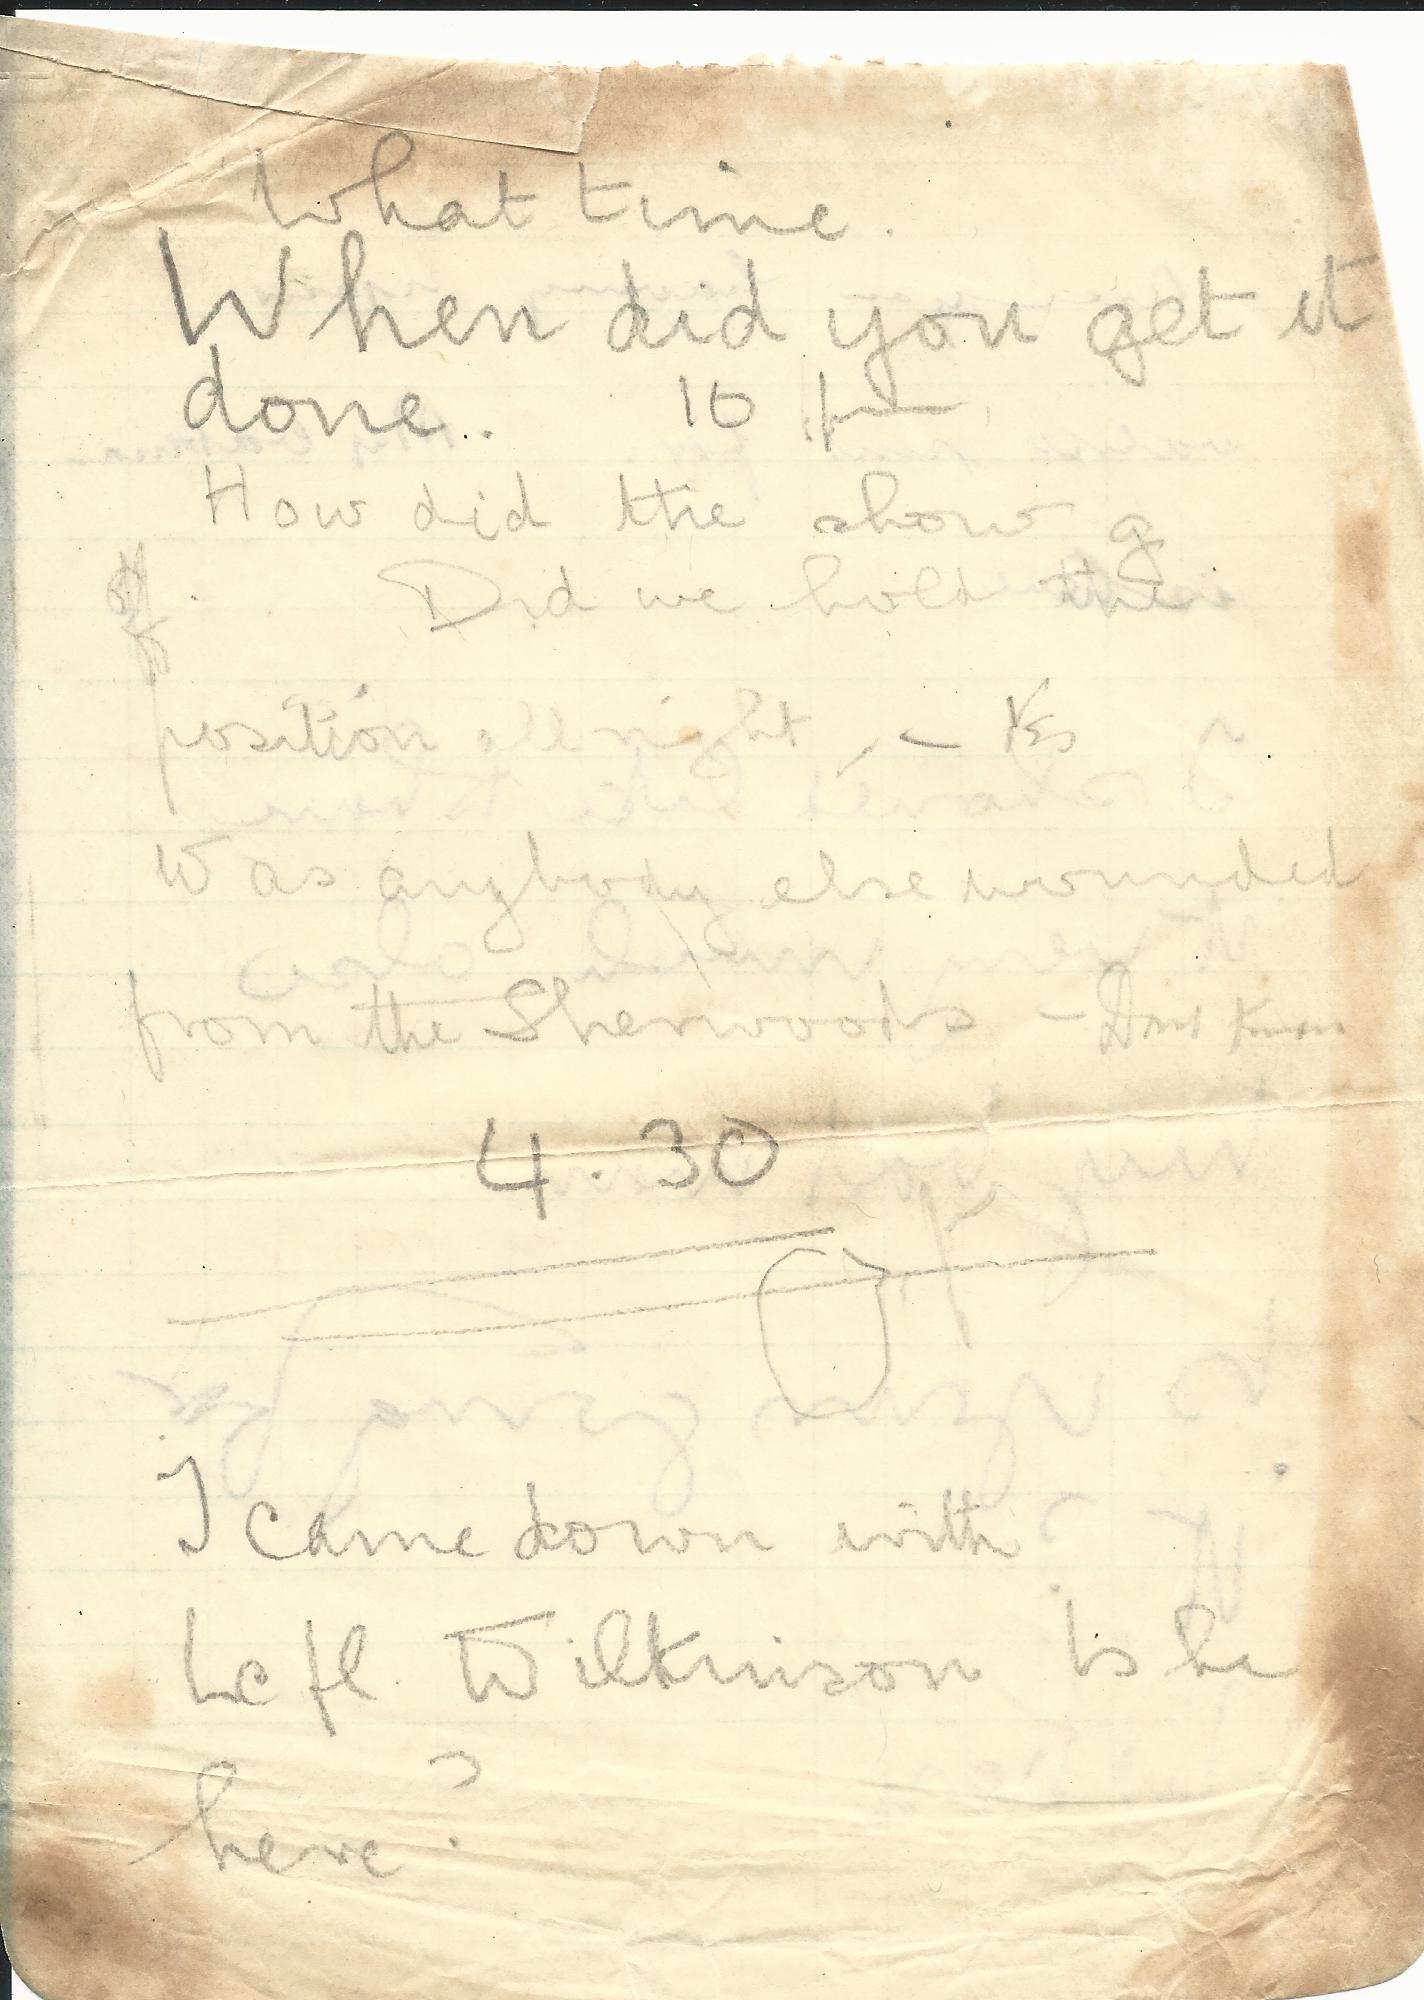 What time.
When did you get it
done.. 10 pm
How did the show g
of. Did we hold the
position allnight, - Yes
Was anybody else wounded
from the Sherwoods - Dont Know
4.30
I came down with
Wilkinson Is he
here?